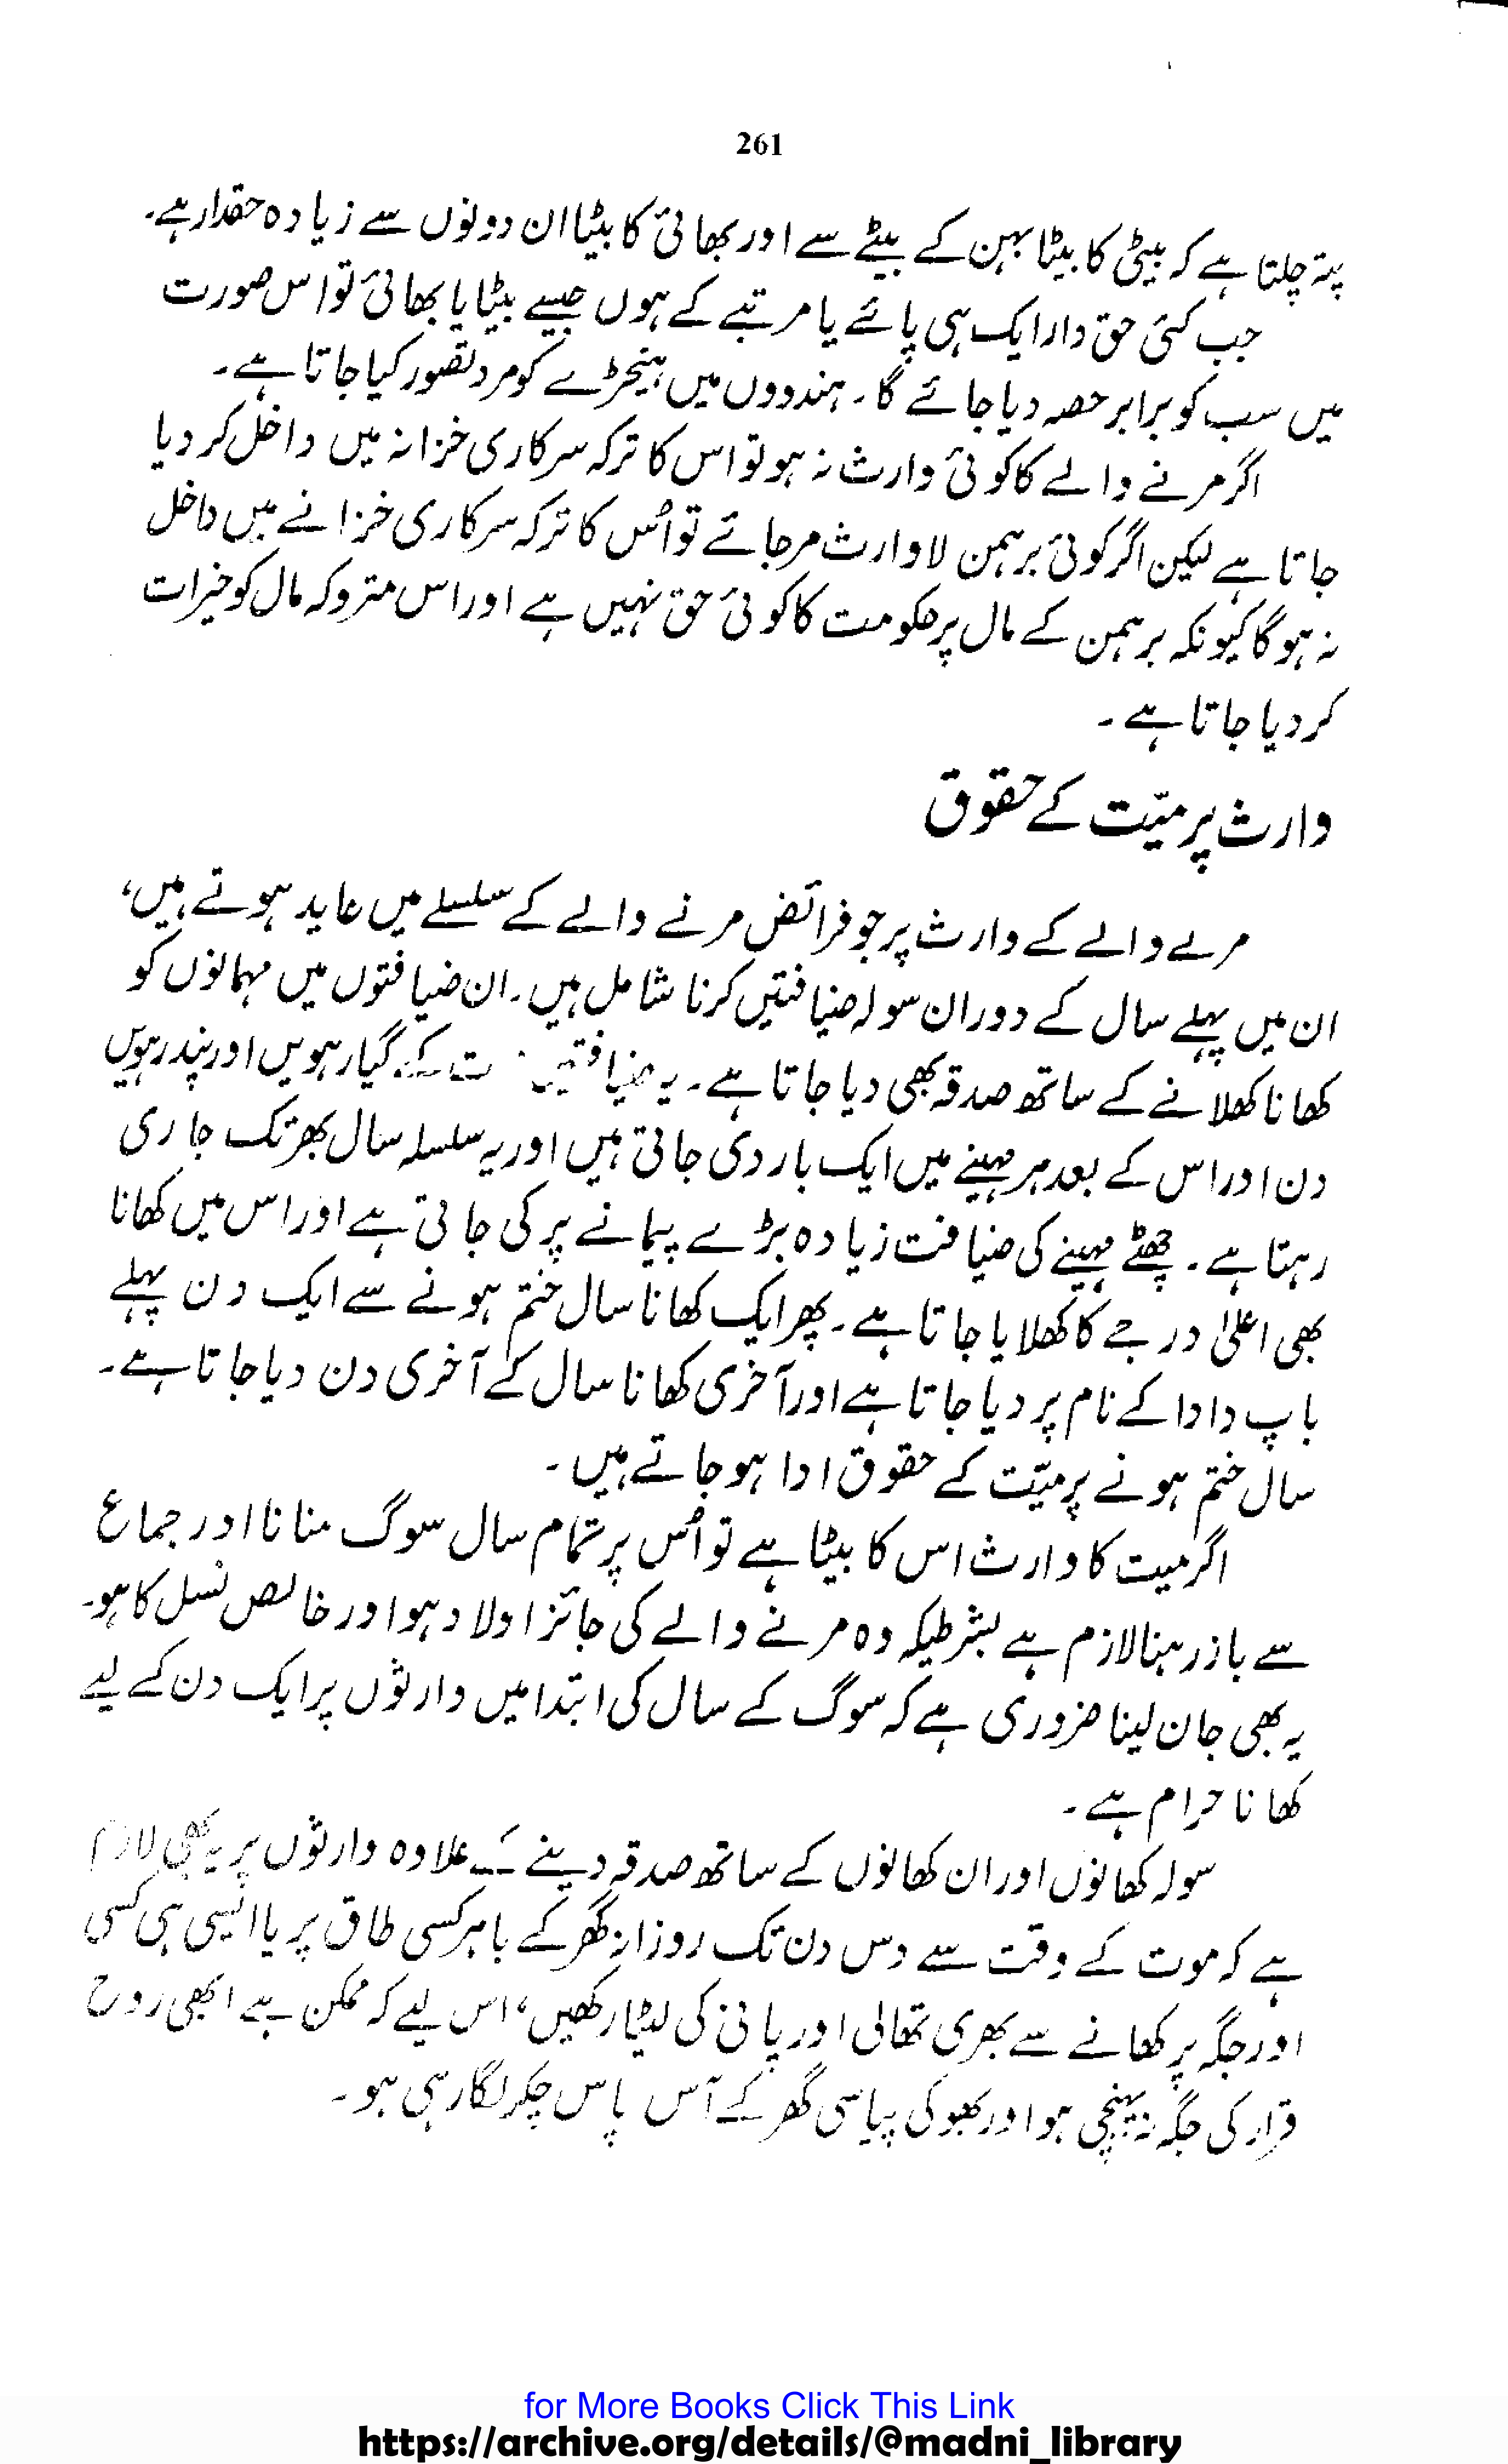 261
پتہ چلتا ہے کہ بیٹی کا بیٹا بہن کے بیٹے سے اور بھائی کا بیٹا ان دونوں سے زیادہ حقدار ہے۔
جب کئی حق دار ایک ہی پائے یا مرتبے کے ہوں جیسے بیٹا یا بھائی تو اس صورت
میں سب کو برابر حصہ دیا جائے گا۔ ہندووں میں ہیجڑے کو مرد تصور کیا جاتا ہے۔
اگر مرنے والے کا کوئی وارث نہ ہو تو اس کا ترکہ سرکاری خزانہ میں داخل کر دیا
جاتا ہے لیکن اگر کوئی برہمن لاوارث مر جائے تو اُس کا ترکہ سرکاری خزانے میں داخل
نہ ہوگا کیونکہ برہمن کے مال پر حکومت کا کوئی حق نہیں ہے اور اس متروکہ مال کو خیرات
کر دیا جاتا ہے۔
وارث پر میّت کے حقوق
مرے والے کے وارث پر جو فرائض مرنے والے کے سلسلے میں عاید ہوتے ہیں،
ان میں پہلے سال کے دوران سولہ ضیافتیں کرنا شامل ہیں۔ ان ضیافتوں میں مہمانوں کو
کھانا کھلانے کے ساتھ صدقہ بھی دیا جاتا ہے۔ یہ ضیافتیں کے گیارہویں اور پندرہویں
دن اور اس کے بعد ہر مہینے میں ایک بار دی جاتی ہیں اور یہ سلسلہ سال بھر تک جاری
رہتا ہے۔ چھٹے مہینے کی ضیافت زیادہ بڑے پیمانے پر کی جاتی ہے اور اس میں کھانا
بھی اعلیٰ درجے کا کھلایا جاتا ہے۔ پھر ایک کھانا سال ختم ہونے سے ایک دن پہلے
باپ دادا کے نام پر دیا جاتا ہے اور آخری کھانا سال کے آخری دن دیا جاتا ہے۔
سال ختم ہونے پر میّت کے حقوق ادا ہو جاتے ہیں۔
اگر میت کا وارث اس کا بیٹا ہے تو اُس پر تمام سال سوگ منانا اور جماع
سے باز رہنا لازم ہے بشرطیکہ وہ مرنے والے کی جائز اولاد ہو اور خالص نسل کا ہو۔
یہ بھی جان لینا ضروری ہے کہ سوگ کے سال کی ابتدا میں وارثوں پر ایک دن کے لیے
کھانا حرام ہے۔
سولہ کھانوں اور ان کھانوں کے ساتھ صدقہ دینے کے علاوہ وارثوں پر یہ بھی لازم
ہے کہ موت کے وقت سے دس دن تک روزانہ گھر کے باہر کسی طاق پر یا ایسی ہی کسی
اور جگہ پر کھانے سے بھری تھالی اور پانی کی لٹیا رکھیں، اس لیے کہ ممکن ہے ابھی روح
قرار کی جگہ نہ پہنچی ہو اور بھوکی پیاسی گھر کے آس پاس چکر لگا رہی ہو۔
for More Books Click This Link
https://archive.org/details/@madni_library